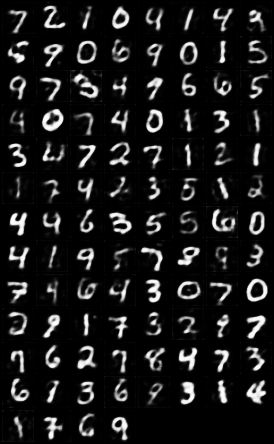 7 2 1 0 4 1 4 9
5 9 0 6 9 0 1 5
9 7 3 4 9 6 6 5
4 0 7 4 0 1 3 1
3 4 7 2 7 1 2 1
1 7 4 2 3 5 1 2
4 4 6 3 5 5 6 0
4 1 9 5 7 8 9 3
7 4 6 4 3 0 7 0
2 9 1 7 3 2 9 7
9 6 2 7 8 4 7 3
6 9 3 6 9 3 1 4
1 7 6 9